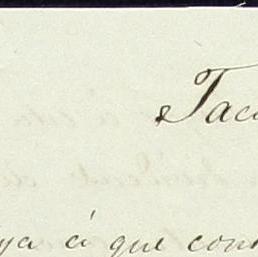 Tac
ya á que con